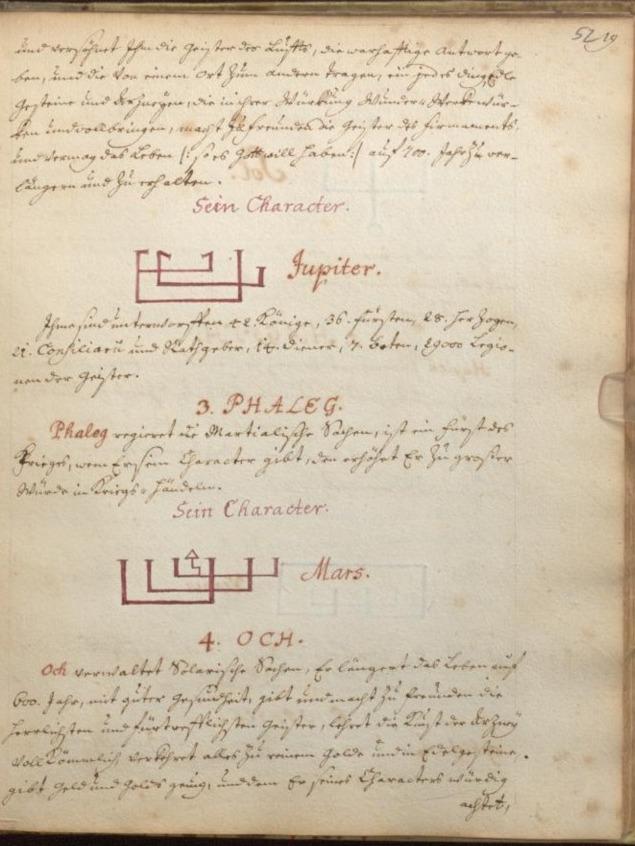 52 19
und versöhnet Ihm die Geister des Luffts, die warhafftige Antwort ge-
ben, und die von einem Ort zum andern tragen, ein jedes Ding, Edle
Gesteine und Arzneyen, die in ihrer Würckung Wunder-Werke wür-
ken und vollbringen, macht zu freunden die Geister des firmaments,
und vermag das Leben |: so es Gott will haben :| auf 700. Jahr zu ver-
längern und zu erhalten.
Sein Character.
Jupiter.
Ihme sind unterworffen 42. Könige, 36. fürsten, 28. Herzogen,
21. Consiliarii und Rathgeber, 14. Diener, 7. Boten, 29000 Legio-
nen der Geister.
3. PHALEG.
Phaleg regieret die Martialische Sachen, ist ein fürst des
Krieges, wem Er sein Character gibt, den erhöhet Er zu großer
Würde in Kriegs-Händeln.
Sein Character.
Mars.
4. OCH.
Och verwaltet Solarische Sachen, Er längert das Leben auf
600. Jahr, mit guter Gesundheit, gibt und macht zu freunden die
herrlichsten und fürtrefflichsten Geister, lehret die Kunst der Arzney
vollkömmlich, verkehret alles zu reinem Golde und in Edelgesteine,
gibt Geld und Golds genug, und dem Er seines Characters würdig
achtet,